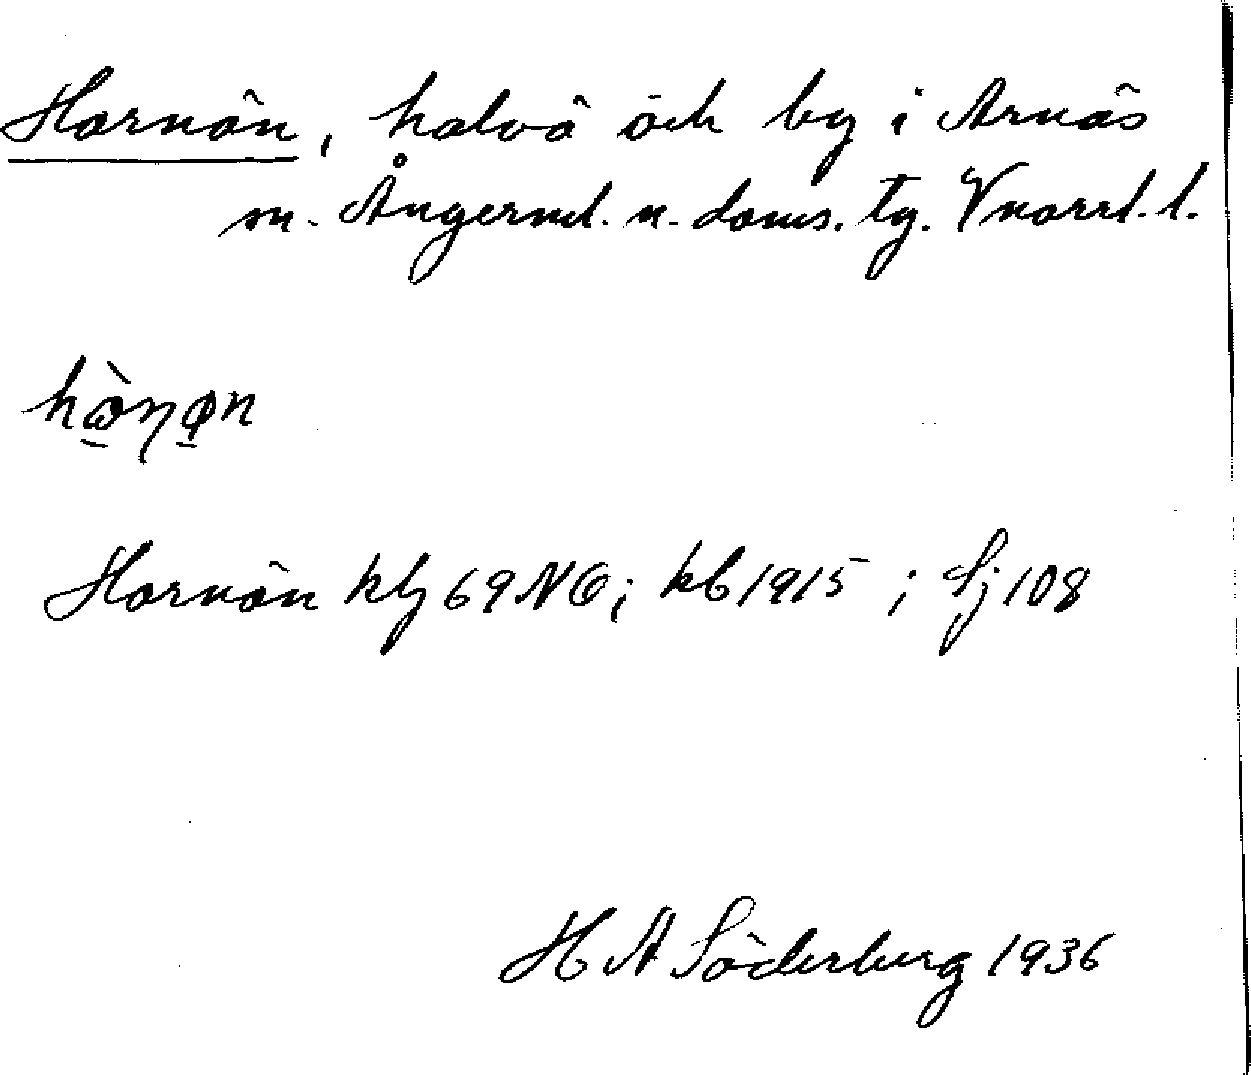 Hornön, halvö och by i Arnäs
sn. Ångerml. n. doms. tg. Vnorrl. l.
Hornön kbl 69 NO; kb 1915 ; Sj 108
H A Söderberg 1936